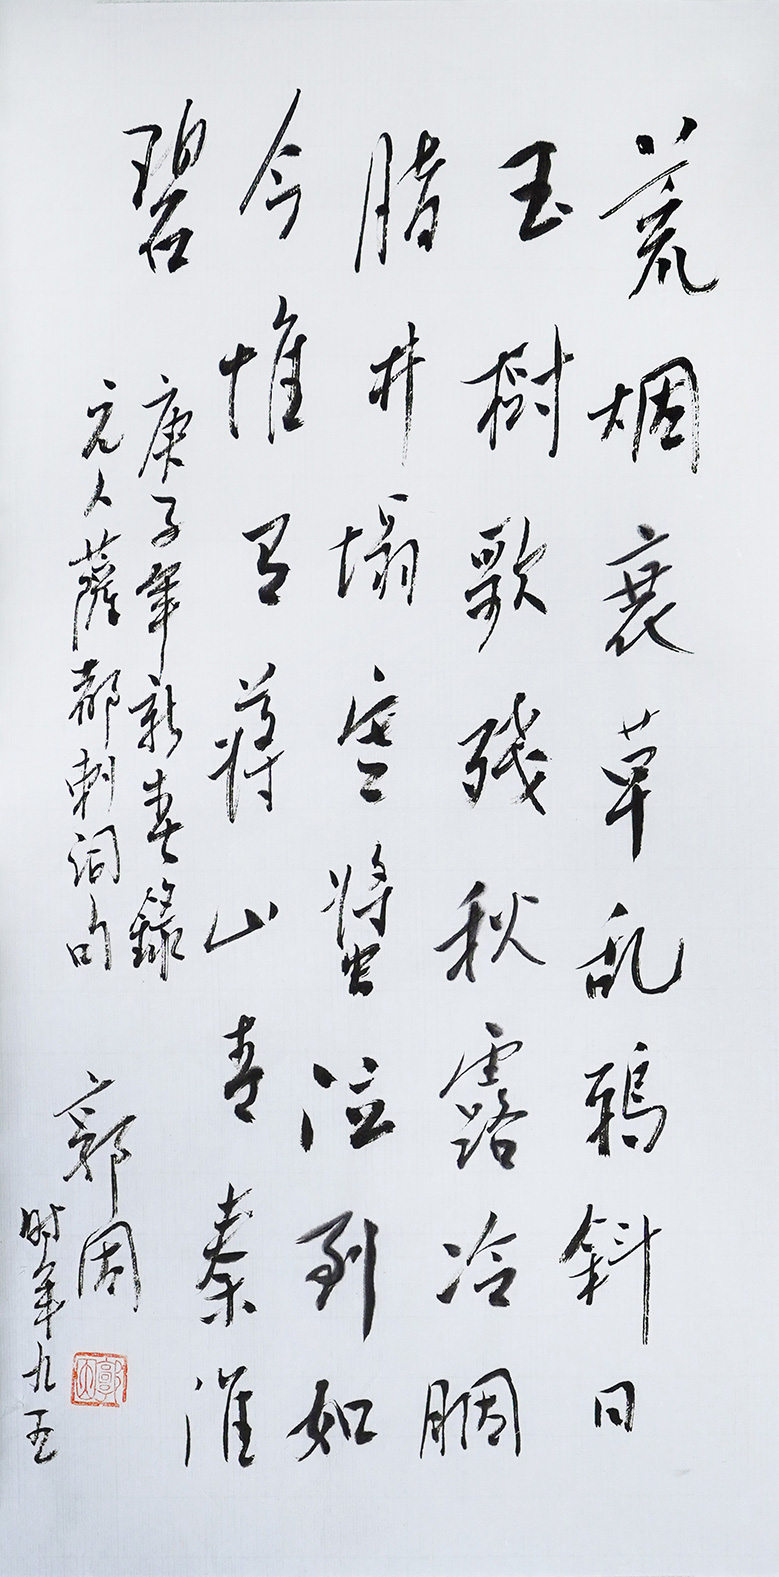 荒烟衰草乱鸦斜日
玉樹歌残秋露冷胭
脂井塌寒螀泣到如
今惟有蔣山青秦淮
碧
庚子年新春錄
元人薩都刺词句
郭周
时年九五